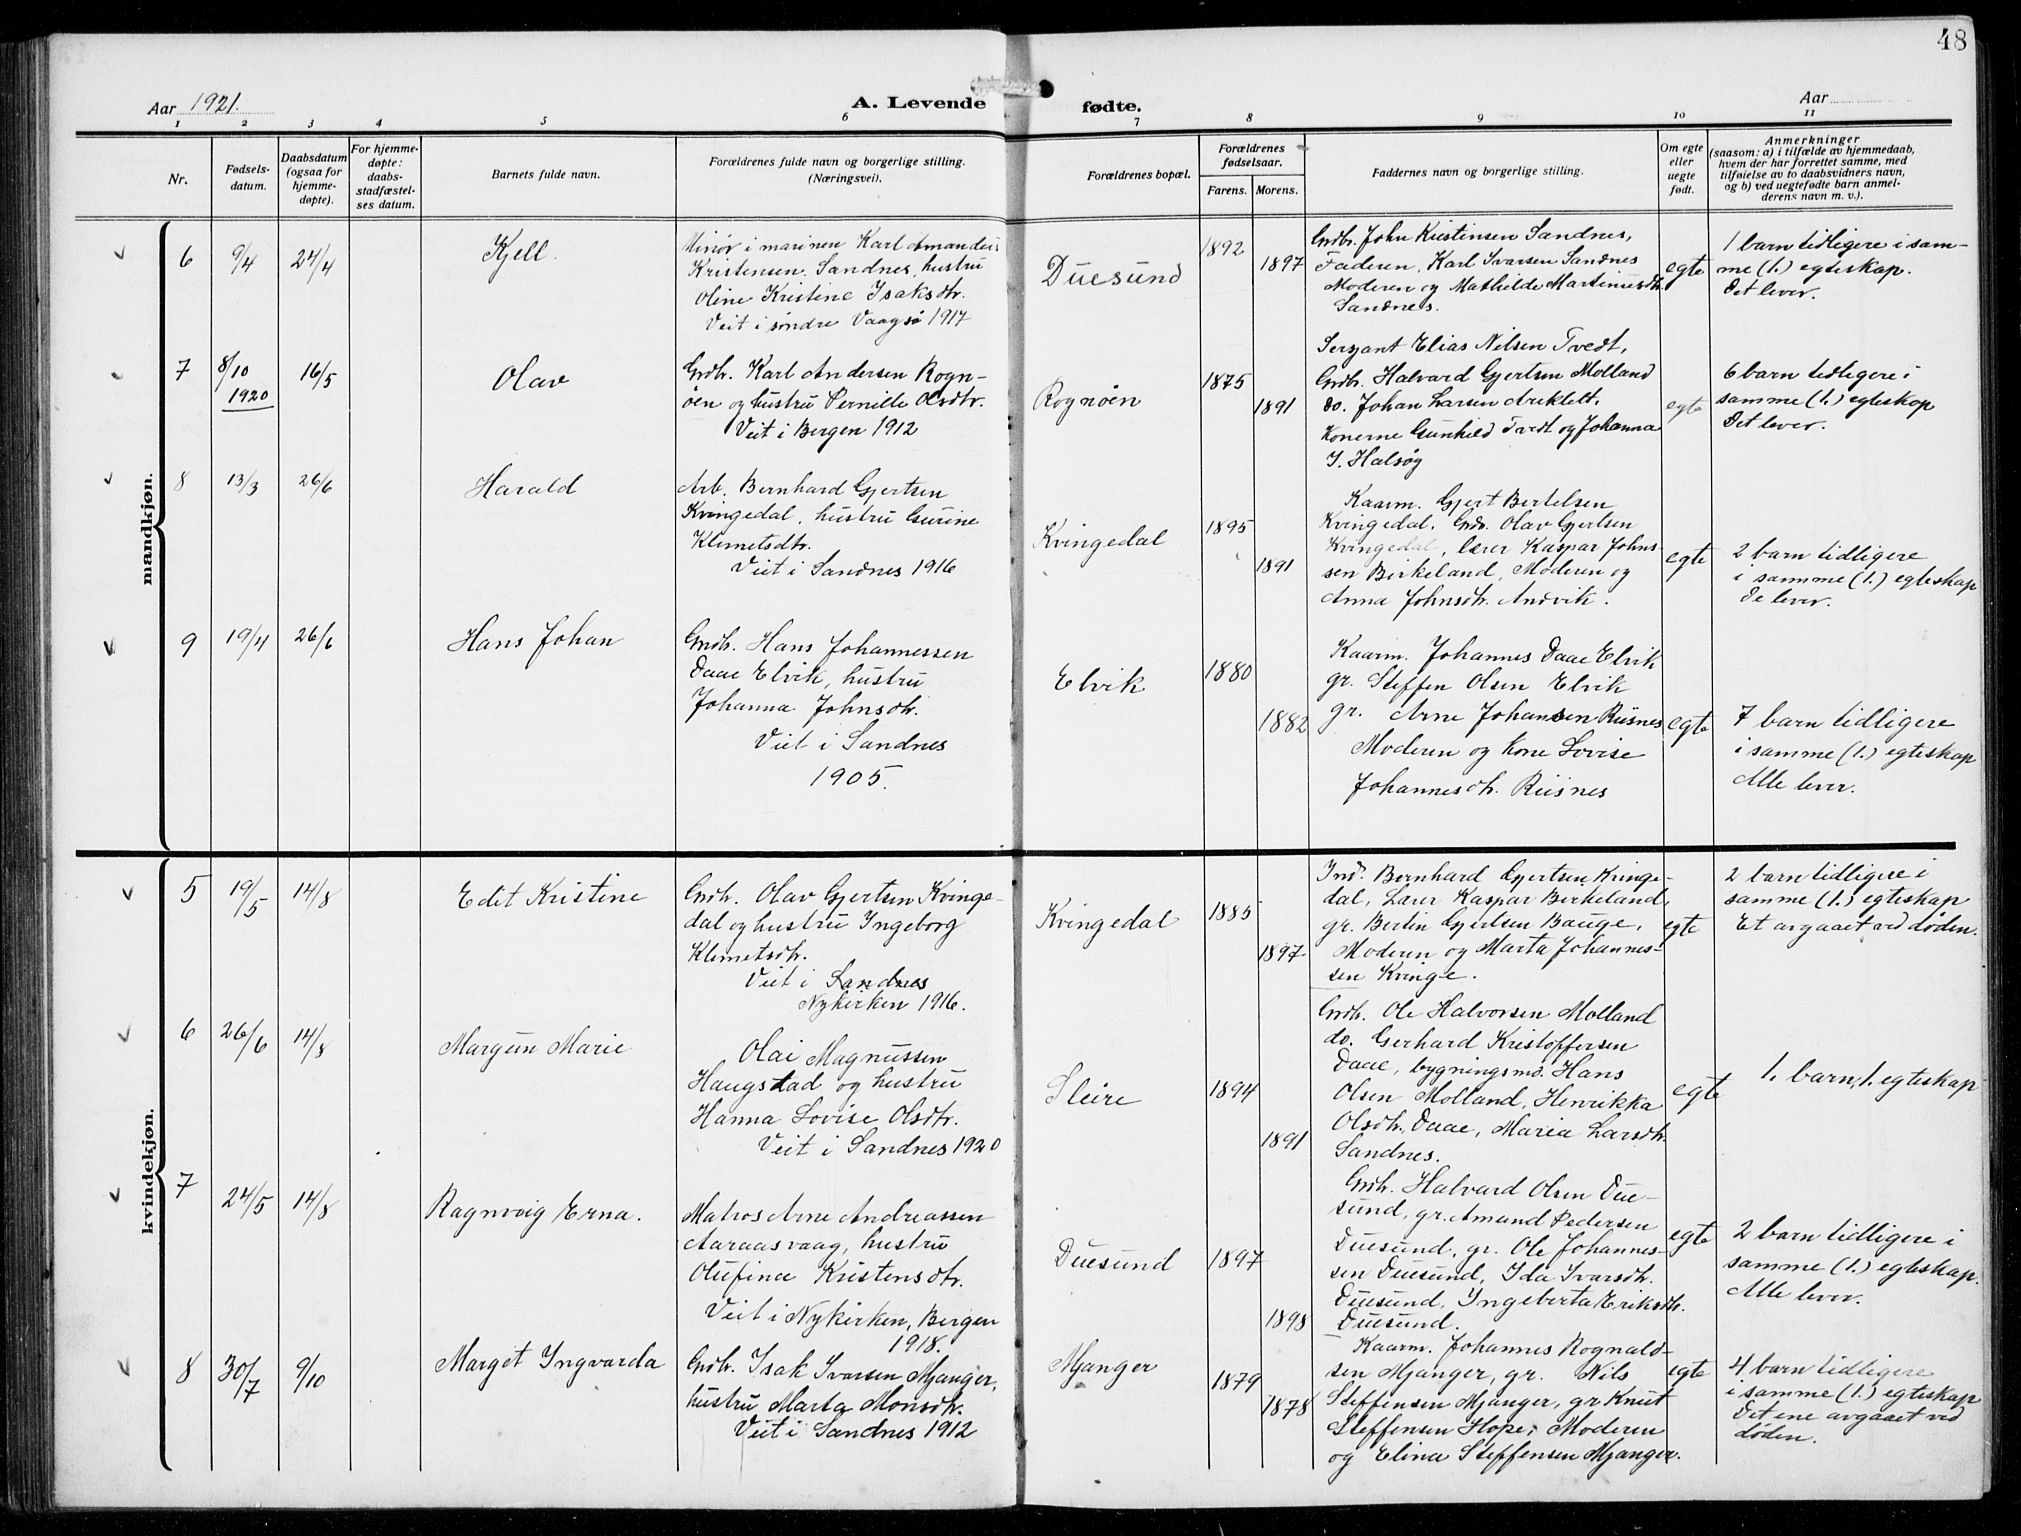 48
Aar 1921.
A. Levende fødte.
Aar
1 2 3 4 5 6 7 8 9 10 11
Nr.
Fødsels-
datum.
Daabsdatum
(ogsaa for
hjemme-
døpte).
For hjemme-
døpte:
daabs-
stadfæstel-
ses datum.
Barnets fulde navn.
Forældrenes fulde navn og borgerlige stilling.
(Næringsvei).
Forældrenes bopæl.
Forældrenes
fødselsaar.
Farens. Morens.
Faddernes navn og borgerlige stilling.
Om egte
eller
uegte
født.
Anmerkninger
(saasom: a) i tilfælde av hjemmedaab,
hvem der har forrettet samme, med
tilføielse av to daabsvidners navn,
og b) ved uegtefødte barn anmel-
derens navn m. v.).
mandkjøn.
6 9/4 24/4 Kjell.
Minør i marinen Karl Amandeus
Kristensen Sandnes, hustru
Oline Kristine Isaksdtr.
Veit i søndre Vaagsø 1917
Duesund
1892
1897
Grdbr. John Kristensen Sandnes,
Faderen, Karl Ivarsen Sandnes
Moderen og Mathilde Martinusdtr.
Sandnes.
egte
1 barn tidligere i sam-
me (1.) egteskap.
Det lever.
7 8/10 1920 16/5 Olav
Grdbr. Karl Andersen Rogn-
øen og hustru Pernille Olsdtr.
Veit i Bergen 1912
Rognøen
1875
1891
Sersjant Elias Nilsen Tvedt,
Grdbr. Halvard Gjertsen Molland
do. Johan Larsen
Konerne Gunhild Tvedt og Johanna
I. Halsøg
egte
6 barn tidligere i
samme (1.) egteskap
Det lever.
8 13/3 26/6 Harald
Arb. Bernhard Gjertsen
Kvingedal, hustru Gurine
Klemetsdtr.
Veit i Sandnes 1916
Kvingedal
1895
1891
Kaarm. Gjert Bertelsen
Kvingedal, Grdb. Olav Gjertsen
Kvingedal, lærer Kaspar Johns-
sen Birkeland, Moderen og
Anna Johnsdtr. Andvik.
egte
2 barn tidligere
i samme (1.) egteskap
De lever.
9 19/4 26/6 Hans Johan
Grdbr. Hans Johannessen
Daae Elvik, hustru
Johanna Johnsdtr.
Veit i Sandnes
1905.
Elvik
1880
1882
Kaarm. Johannes Daae Elvik
gr. Steffen Olsen Elvik
gr. Arne Johansen Risnes
Moderen og kone Lovise
Johannesdtr. Risnes
egte
7 barn tidligere
i samme (1.) egteskap
Alle lever.
kvindekjøn.
5 19/5 14/8 Edit Kristine
Grdbr. Olav Gjertsen Kvinge-
dal og hustru Ingeborg
Klemetsdtr.
Veit i Sandnes
Nykirken 1916.
Kvingedal
1885
1897
Ind. Bernhard Gjertsen Kvinge-
dal, Lærer Kaspar Birkeland,
gr. Bertin Gjertsen Bauge,
Moderen og Marta Johannes-
sen Kvinge.
egte
2 barn tidligere i
samme (1.) egteskap
Et avgaaet ved døden.
6 26/6 14/8 Margun Marie
Olai Magnussen
Haugstad og hustru
Hanna Lovise Olsdtr.
Veit i Sandnes 1920
Sleire
1894
1891
Grdbr. Ole Halvorsen Molland
do. Gerhard Kristoffersen
Daae, bygningsmd. Hans
Olsen Molland, Henrikka
Olsdtr. Daae, Maria Larsdtr.
Sandnes.
egte
1. barn, 1. egteskap
7 24/5 14/8 Ragnvig Erna.
Matros Arne Andreassen
Aaraasvaag, hustru
Olufina Kristensdtr.
Veit i Nykirken, Bergen
1918.
Duesund
1897
1898
Grdbr. Halvard Olsen Due-
sund, gr. Amund Pedersen
Duesund, gr. Ole Johannes-
sen Duesund, Ida Ivarsdtr.
Duesund, Ingeberta Eriksdtr.
Duesund.
egte
2 barn tidligere i
samme (1.) egteskap.
Alle lever.
8 30/7 9/10 Marget Ingvarda
Grdbr. Isak Ivarsen Mjanger,
hustru Marta Monsdtr.
Veit i Sandnes 1912
Mjanger
1879
1878
Kaarm. Johannes Rognald-
sen Mjanger, gr. Nils
Steffensen Mjanger, gr Knut
Steffensen Hope, Moderen
og Elina Steffensen Mjanger.
egte
4 barn tidligere
i samme (1.) egteskap
Det ene avgaaet ved
døden.